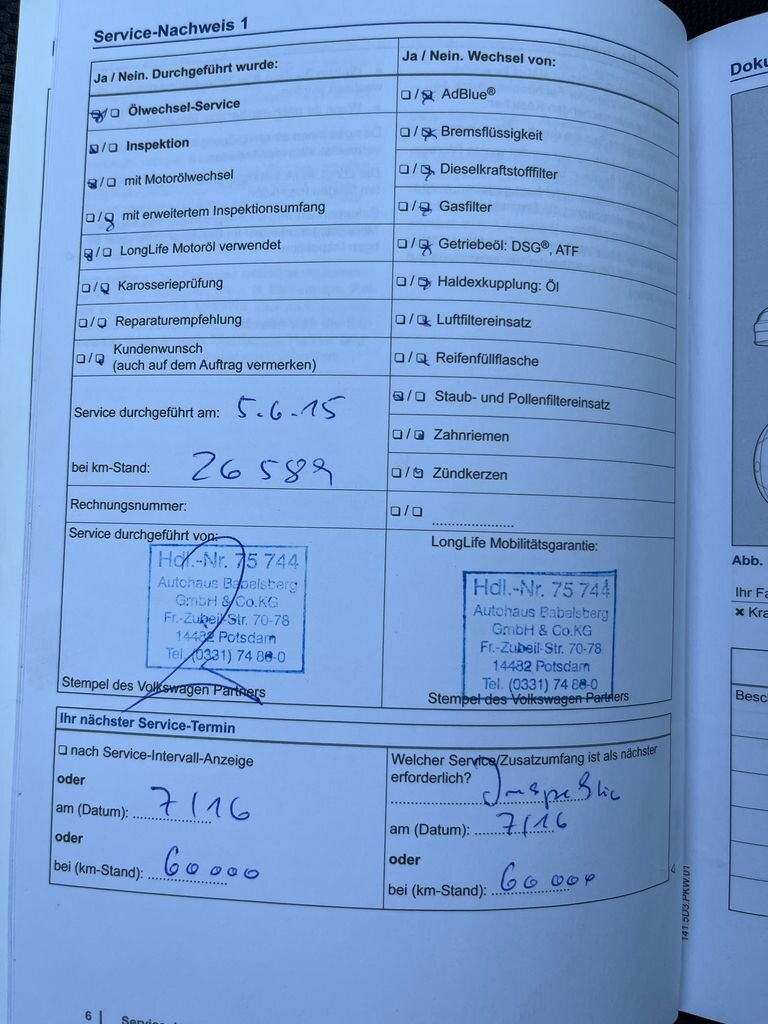 Service-Nachweis 1
Ja / Nein. Durchgeführt wurde:
Ölwechsel-Service
Inspektion
mit Motorölwechsel
mit erweitertem Inspektionsumfang
LongLife Motoröl verwendet
Karosserieprüfung
Reparaturempfehlung
Kundenwunsch
(auch auf dem Auftrag vermerken)
Service durchgeführt am: 5.6.15
bei km-Stand: 26589
Rechnungsnummer:
Service durchgeführt von:
Hdl.-Nr. 75 744
Autohaus Babelsberg
GmbH & Co.KG
Fr.-Zubeil-Str. 70-78
14482 Potsdam
Tel. (0331) 74 88-0
Stempel des Volkswagen Partners
Ja / Nein. Wechsel von:
AdBlue®
Bremsflüssigkeit
Dieselkraftstofffilter
Gasfilter
Getriebeöl: DSG®, ATF
Haldexkupplung: Öl
Luftfiltereinsatz
Reifenfüllflasche
Staub- und Pollenfiltereinsatz
Zahnriemen
Zündkerzen
LongLife Mobilitätsgarantie:
Hdl.-Nr. 75 744
Autohaus Babelsberg
GmbH & Co.KG
Fr.-Zubeil-Str. 70-78
14482 Potsdam
Tel. (0331) 74 88-0
Stempel des Volkswagen Partners
Ihr nächster Service-Termin
nach Service-Intervall-Anzeige
oder
am (Datum): 7/16
oder
bei (km-Stand): 60000
Welcher Service/Zusatzumfang ist als nächster
erforderlich? Inspektio
am (Datum): 7/16
oder
bei (km-Stand): 60000
141.5D3.PKW.01
6
Doku
Abb.
Ihr Fa
Kra
Besc